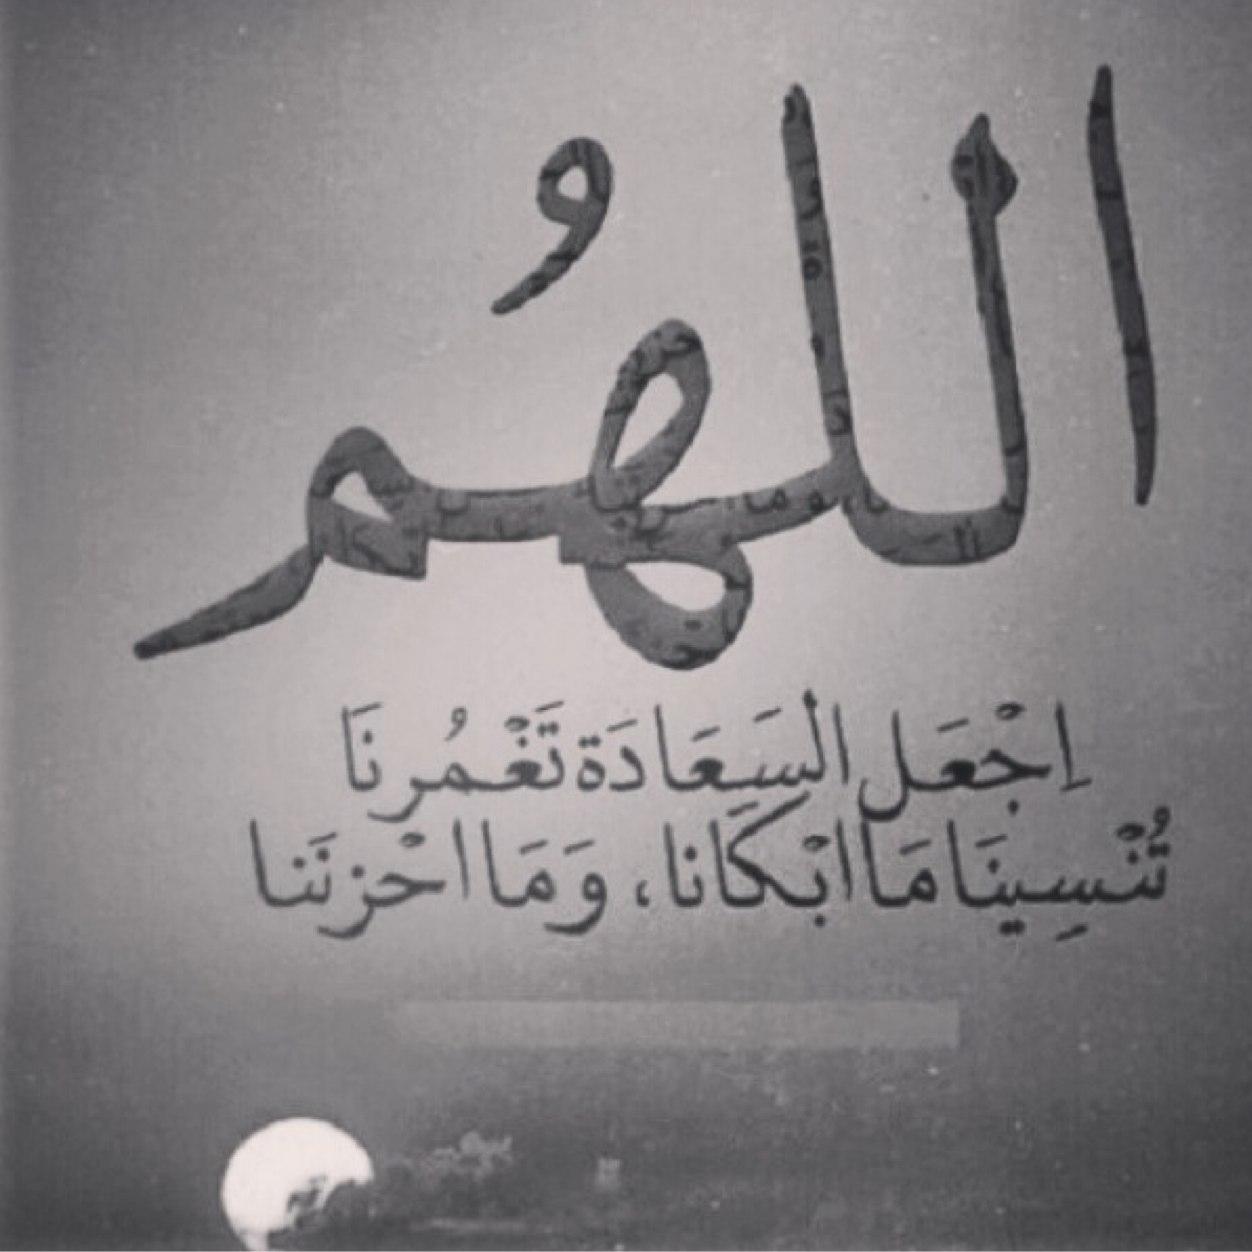 اللهُم
اِجْعَل السَعَادَة تَغْمُرنَا
تُنْسِينَا مَا ابْكَانا، وَمَا احْزنَنا